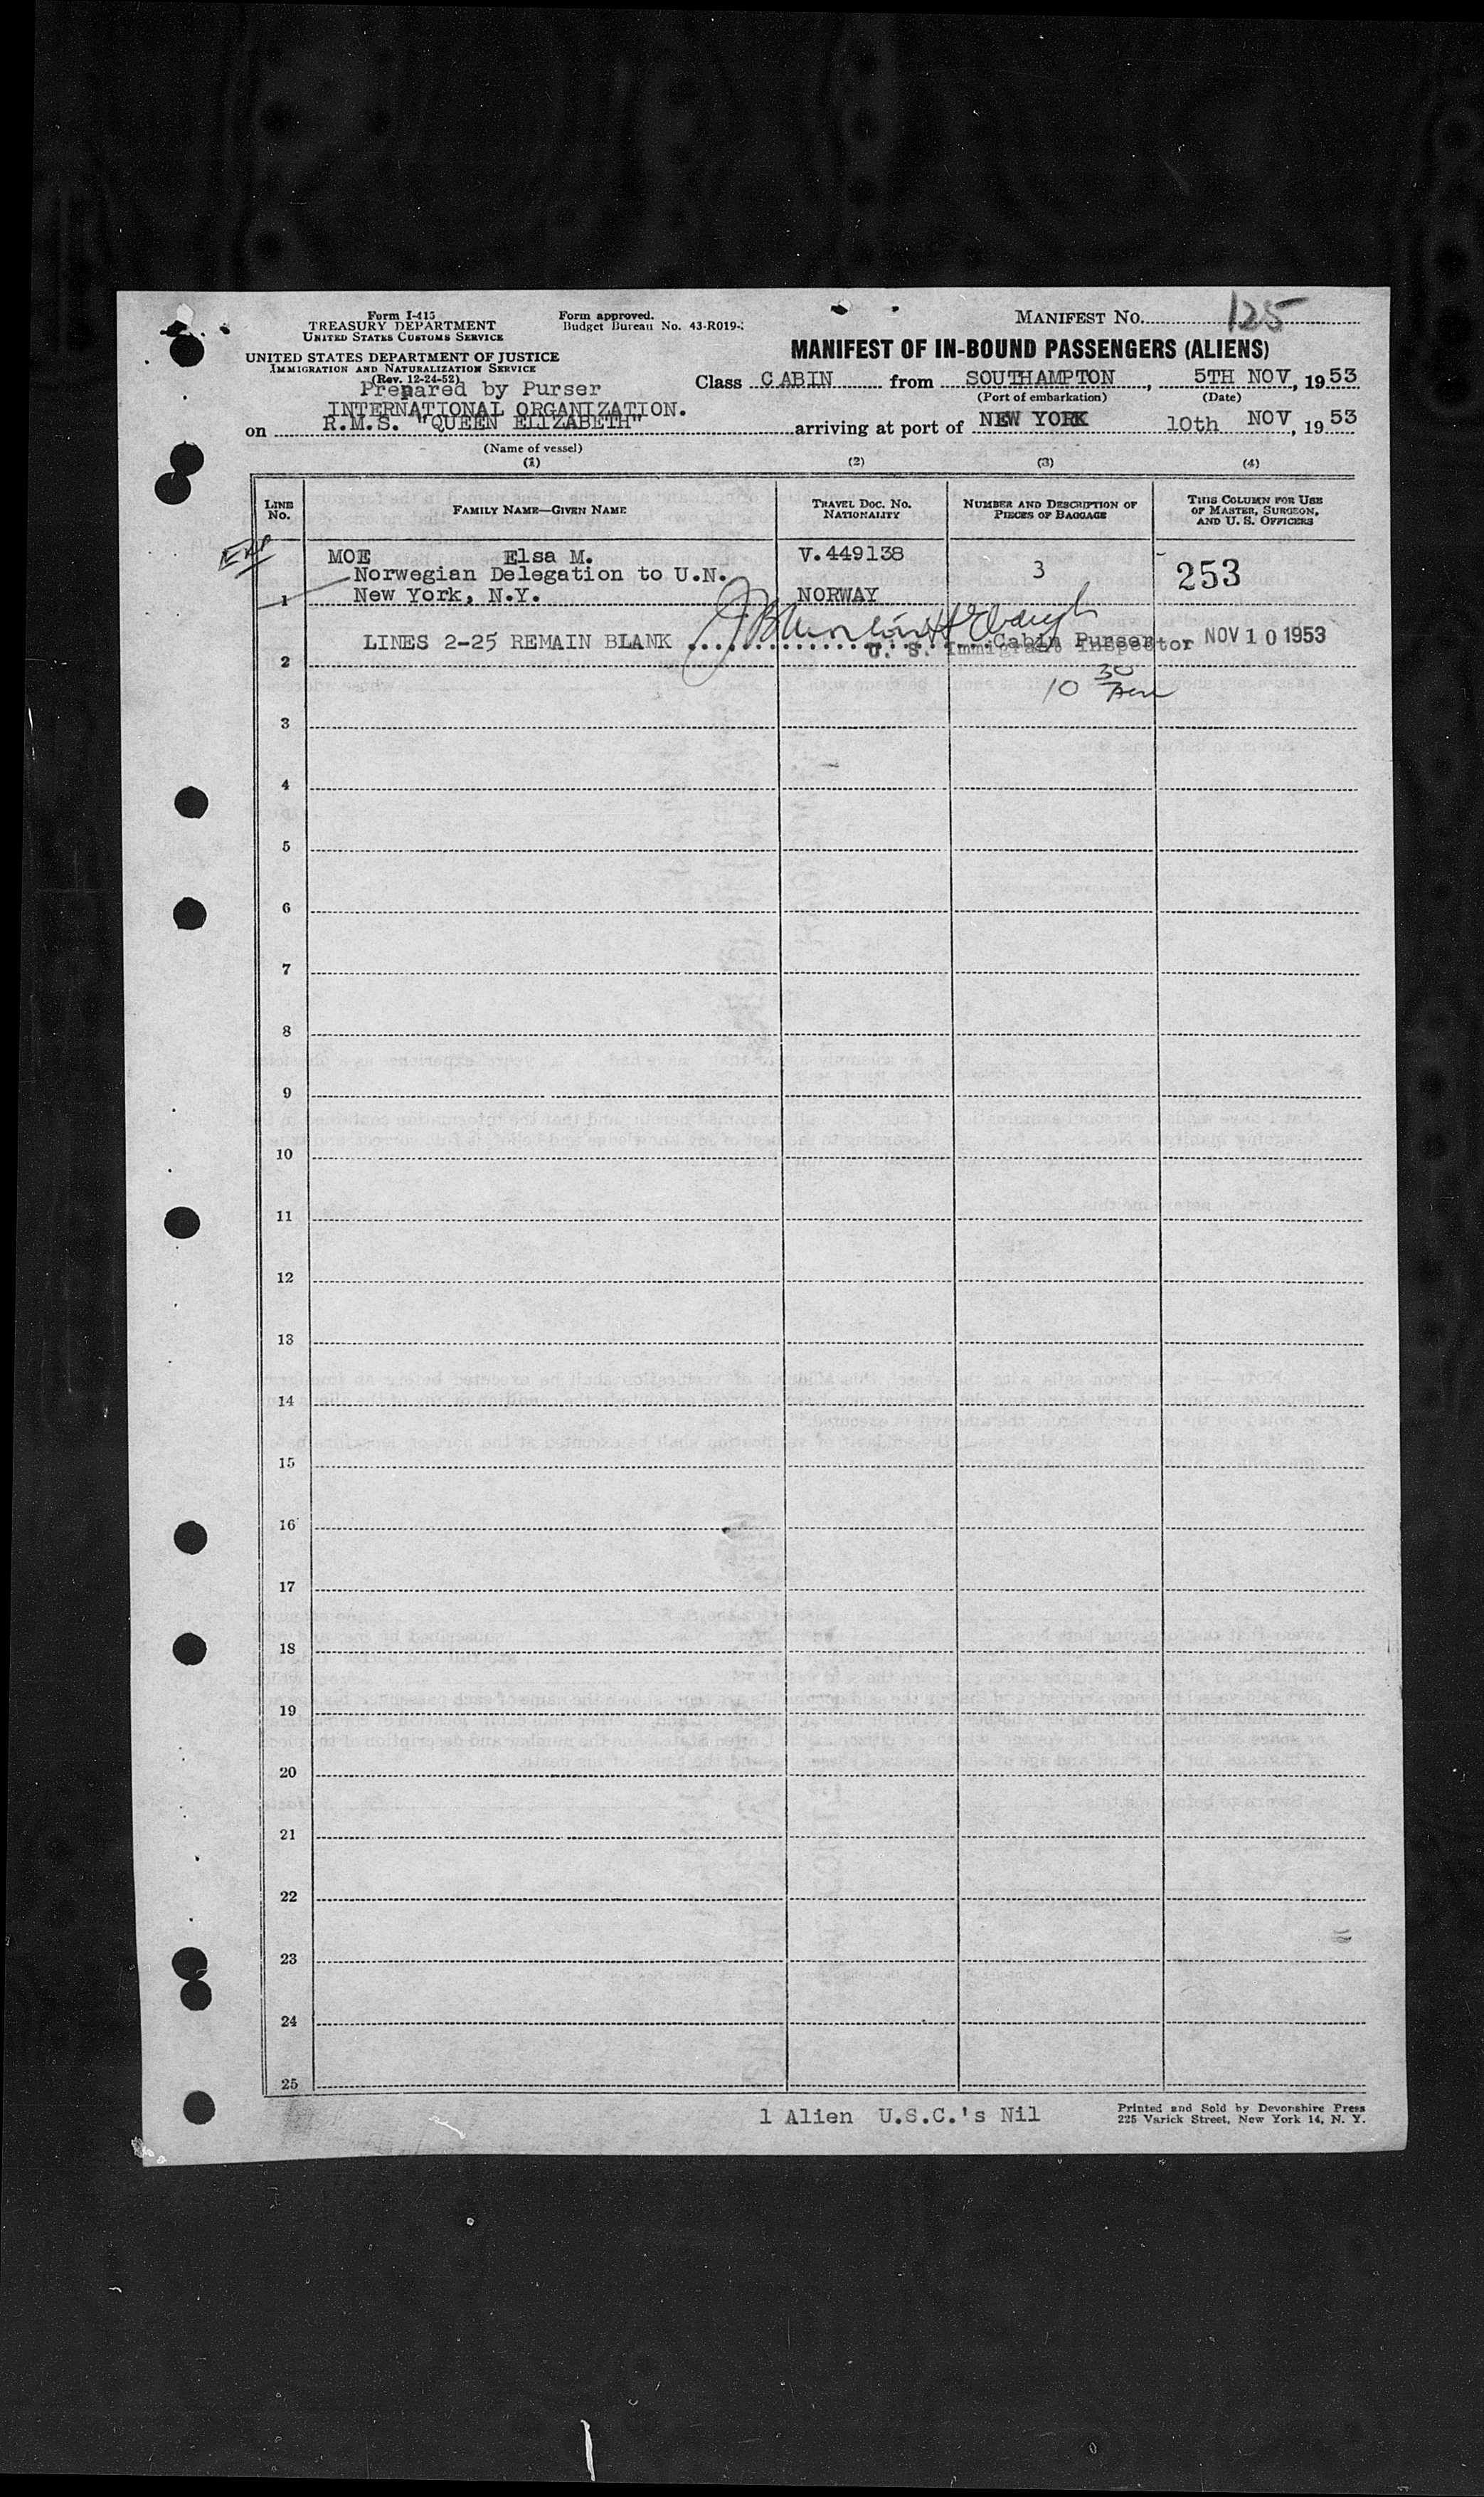 Form I-415
TREASURY DEPARTMENT
UNITED STATES CUSTOMS SERVICE
Form approved.
Budget Bureau No. 43-R019-
MANIFEST No. 125
UNITED STATES DEPARTMENT OF JUSTICE
IMMIGRATION AND NATURALIZATION SERVICE
(Rev. 12-24-52)
MANIFEST OF IN-BOUND PASSENGERS (ALIENS)
Prepared by Purser
Class CABIN from SOUTHAMPTON, 5TH NOV, 1953
(Port of embarkation) (Date)
INTERNATIONAL ORGANIZATION.
on R.M.S. "QUEEN ELIZABETH" arriving at port of NEW YORK 10th NOV, 1953
(Name of vessel)
(1) (2) (3) (4)
LINE No. FAMILY NAME—GIVEN NAME TRAVEL DOC. NO. NATIONALITY NUMBER AND DESCRIPTION OF PIECES OF BAGGAGE THIS COLUMN FOR USE OF MASTER, SURGEON, AND U. S. OFFICERS
MOE Elsa M. V.449138
Norwegian Delegation to U.N. 3 253
1 New York, N.Y. NORWAY
LINES 2-25 REMAIN BLANK Cabin Purser NOV 10 1953
U. S. Immigrant Inspector
2
10 30
3
4
5
6
7
8
9
10
11
12
13
14
15
16
17
18
19
20
21
22
23
24
25
1 Alien U.S.C.'s Nil
Printed and Sold by Devonshire Press
225 Varick Street, New York 14, N. Y.